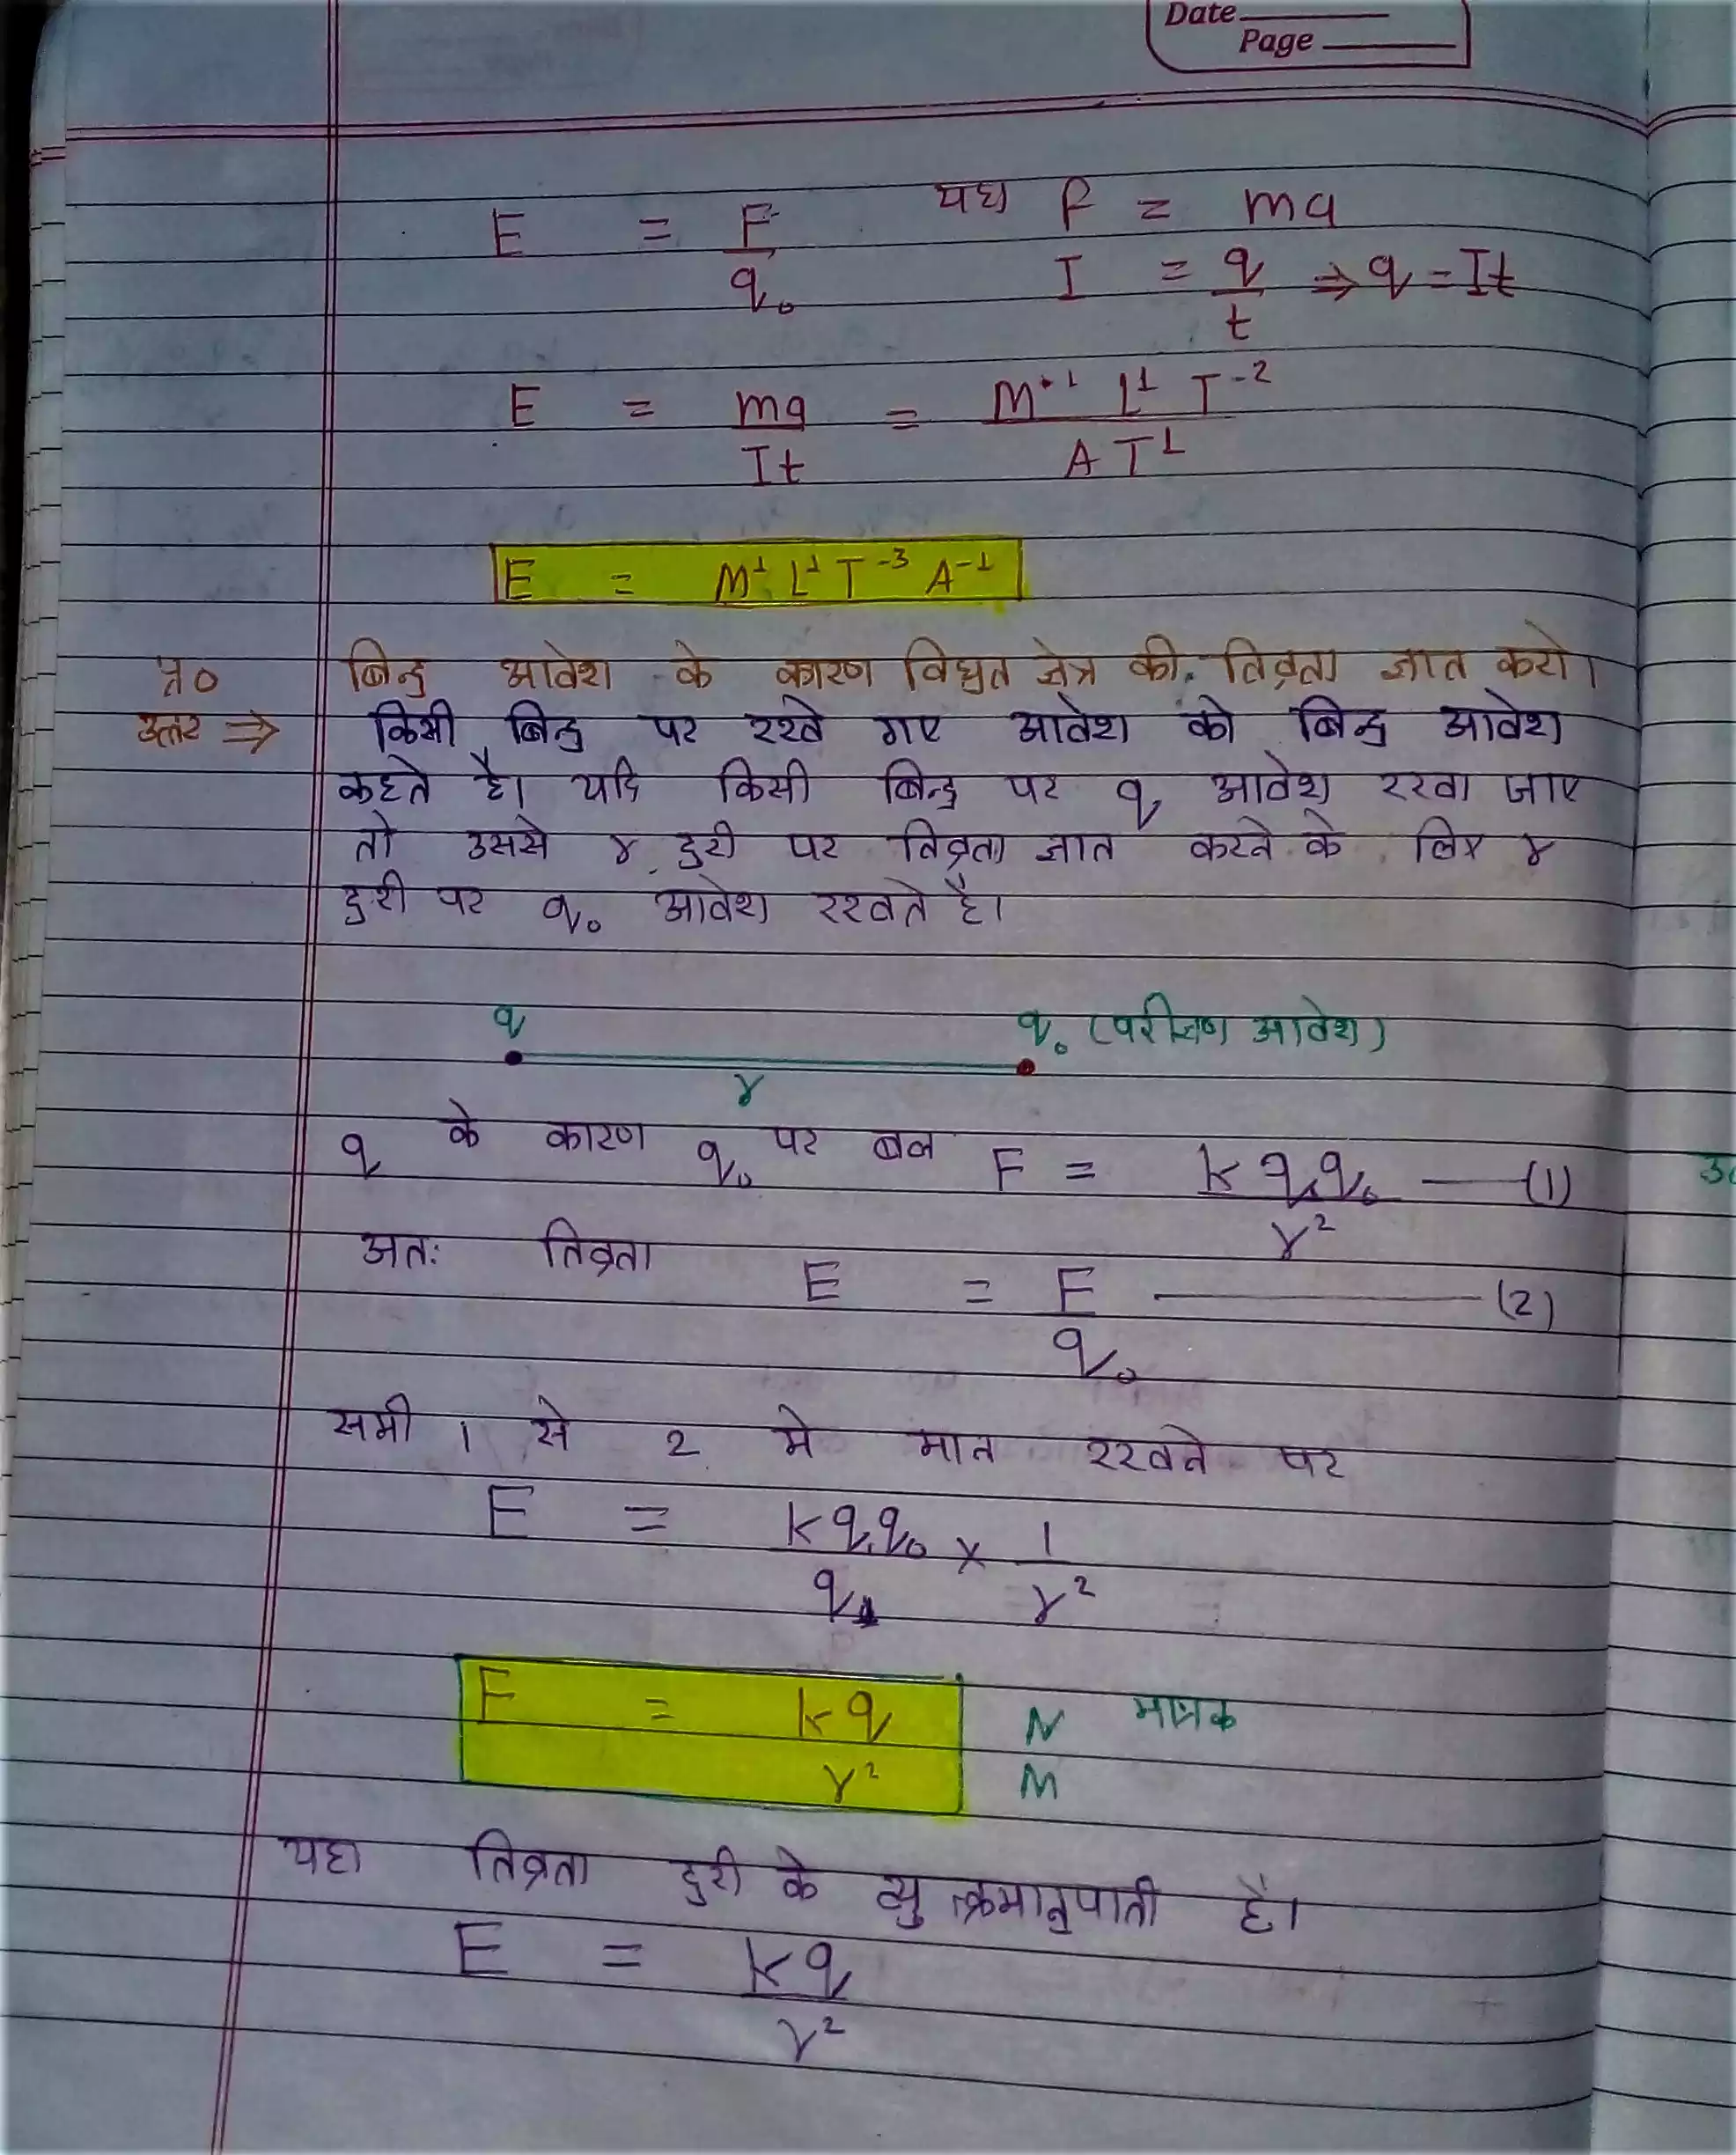 Date
Page
E = F/q₀ यहा F = ma
I = q/t ⇒ q = It
E = ma/It = M⁺¹ L¹ T⁻²/A T¹
E = M¹ L¹ T⁻³ A⁻¹
प्र० बिन्दु आवेश के कारण विधुत क्षेत्र की तिव्रता ज्ञात करो।
उत्तर ⇒ किसी बिन्दु पर रखे गए आवेश को बिन्दु आवेश
कहते है। यदि किसी बिन्दु पर q आवेश रखा जाए
तो उससे r दुरी पर तिव्रता ज्ञात करने के लिए r
दुरी पर q₀ आवेश रखते है।
q q₀ (परीक्षण आवेश)
r
q के कारण q₀ पर बल F = k q q₀/r² — (1)
अतः तिव्रता E = F/q₀ — (2)
समी 1 से 2 मे मान रखने पर
E = k q q₀/q₀ × 1/r²
E = kq/r² N/M मात्रक
यहा तिव्रता दुरी के व्युत्क्रमानुपाती है।
E = kq/r²